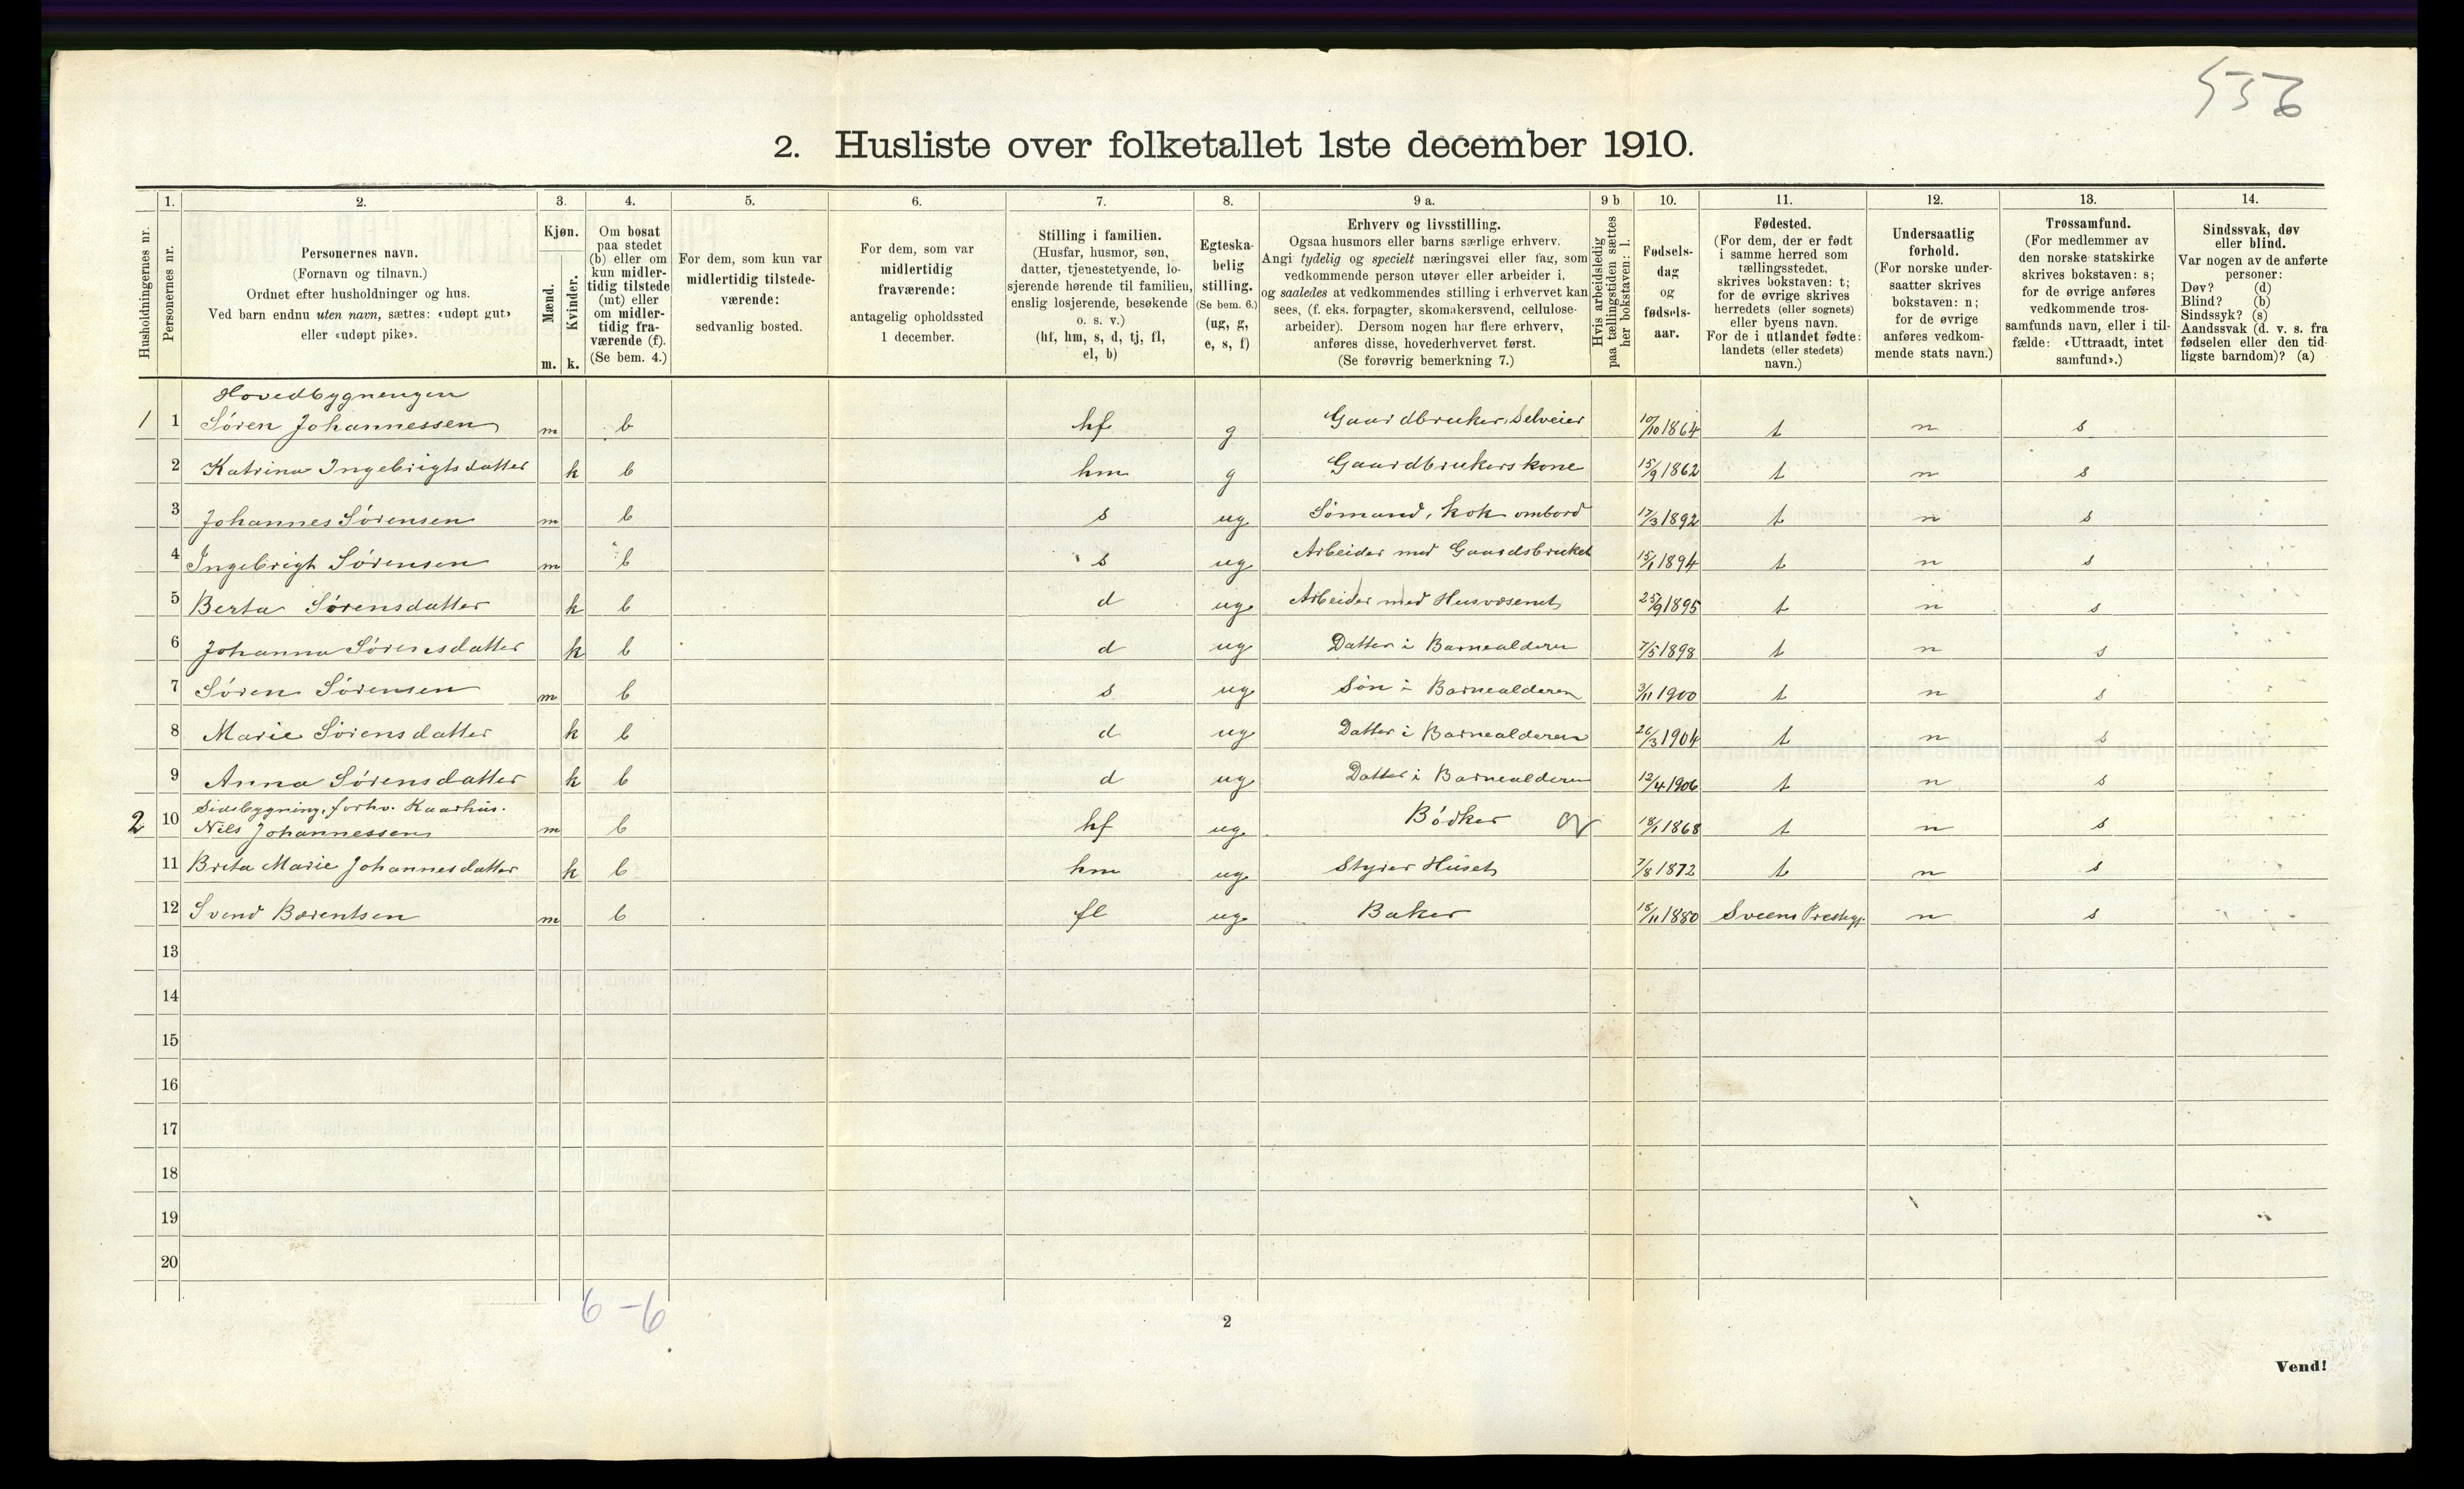 536
2. Husliste over folketallet 1ste december 1910.
1. 2. 3. 4. 5. 6. 7. 8. 9 a. 9 b 10. 11. 12. 13. 14.
Husholdningernes nr.
Personernes nr.
Personernes navn.
(Fornavn og tilnavn.)
Ordnet efter husholdninger og hus.
Ved barn endnu uten navn, sættes: «udøpt gut»
eller «udøpt pike».
Kjøn.
Mænd.
Kvinder.
m. k.
Om bosat
paa stedet
(b) eller om
kun midler-
tidig tilstede
(mt) eller
om midler-
tidig fra-
værende (f).
(Se bem. 4.)
For dem, som kun var
midlertidig tilstede-
værende:
sedvanlig bosted.
For dem, som var
midlertidig
fraværende:
antagelig opholdssted
1 december.
Stilling i familien.
(Husfar, husmor, søn,
datter, tjenestetyende, lo-
sjerende hørende til familien,
enslig losjerende, besøkende
o. s. v.)
(hf, hm, s, d, tj, fl,
el, b)
Egteska-
belig
stilling.
(Se bem. 6.)
(ug, g,
e, s, f)
Erhverv og livsstilling.
Ogsaa husmors eller barns særlige erhverv.
Angi tydelig og specielt næringsvei eller fag, som
vedkommende person utøver eller arbeider i,
og saaledes at vedkommendes stilling i erhvervet kan
sees, (f. eks. forpagter, skomakersvend, cellulose-
arbeider). Dersom nogen har flere erhverv,
anføres disse, hovederhvervet først.
(Se forøvrig bemerkning 7.)
Hvis arbeidsledig
paa tællingstiden sættes
her bokstaven: l.
Fødsels-
dag
og
fødsels-
aar.
Fødested.
(For dem, der er født
i samme herred som
tællingsstedet,
skrives bokstaven: t;
for de øvrige skrives
herredets (eller sognets)
eller byens navn.
For de i utlandet fødte:
landets (eller stedets)
navn.)
Undersaatlig
forhold.
(For norske under-
saatter skrives
bokstaven: n;
for de øvrige
anføres vedkom-
mende stats navn.)
Trossamfund.
(For medlemmer av
den norske statskirke
skrives bokstaven: s;
for de øvrige anføres
vedkommende tros-
samfunds navn, eller i til-
fælde: «Uttraadt, intet
samfund».)
Sindssvak, døv
eller blind.
Var nogen av de anførte
personer:
Døv? (d)
Blind? (b)
Sindssyk? (s)
Aandssvak (d. v. s. fra
fødselen eller den tid-
ligste barndom)? (a)
Hovedbygnengen
1 1 Søren Johannessen m b hf g Gaardbruker, Selveier 10/10 1864 t n s
2 Katrina Ingebrigtsdatter k b hm g Gaardbrukers kone 15/9 1862 t n s
3 Johannes Sörensen m b s ug Sömand, kok ombord 17/3 1892 t n s
4 Ingebrigt Sörensen m b s ug Arbeider med Gaardsbruket 15/1 1894 t n s
5 Berta Sörensdatter k b d ug Arbeider med Husvæsenet 25/9 1895 t n s
6 Johanna Sörensdatter k b d ug Datter i Barnealderen 7/5 1898 t n s
7 Sören Sörensen m b s ug Sön i Barnealderen 3/11 1900 t n s
8 Marie Sörensdatter k b d ug Datter i Barnealderen 26/3 1904 t n s
9 Anna Sörensdatter k b d ug Datter i Barnealderen 12/4 1906 t n s
Sidebygning, forhv. Kaarhus.
2 10 Nils Johannessen m b hf ug Bödker 18/1 1868 t n s
11 Breta Marie Johannesdatter k b hm ug Styrer Huset 7/8 1872 t n s
12 Svend Bærentsen m b fl ug Baker 18/11 1880 Sveens Prestegj. n s
13
14
15
16
17
18
19
20
6 - 6
2
Vend!